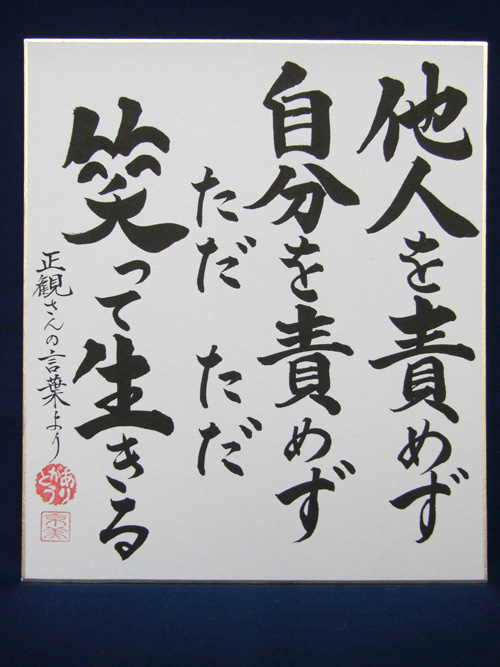 他人を責めず
自分を責めず
ただ ただ
笑って生きる
正観さんの言葉より
ありがとう
京美